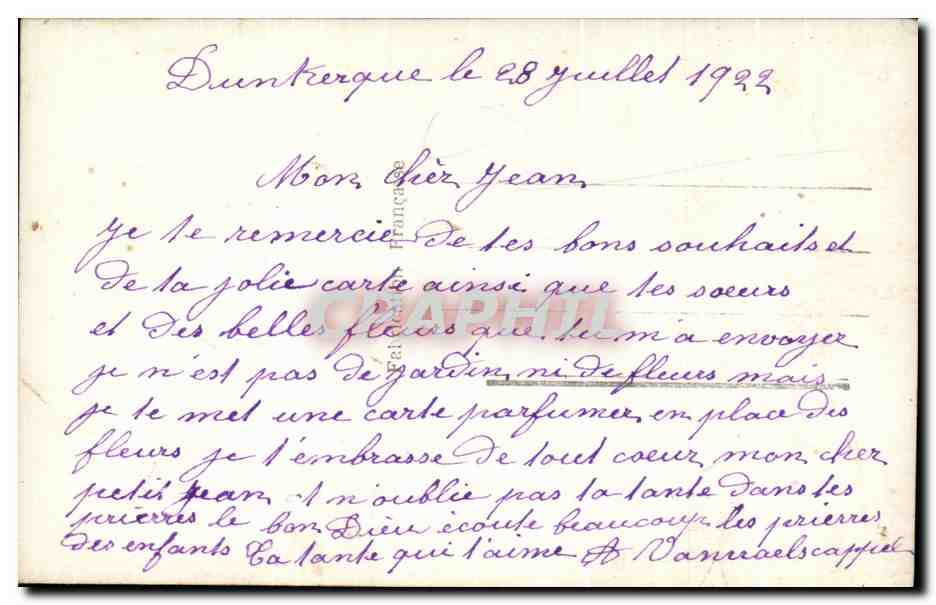 Dunkerque le 28 Juillet 1922
Mon chèr Jean
je te remercie de tes bons souhaits et
de ta jolie carte ainsi que tes soeurs
et des belles fleurs que tu m'a envoyer
je n'est pas de jardin ni de fleurs mais
je te met une carte parfumer en place des
fleurs je t'embrasse de tout coeur mon cher
petit Jean et n'oublie pas ta tante dans tes
prierres le bon Dieu écoute beaucoup les prierres
des enfants Ta tante qui t'aime A
Fabrication Française
CPAPHIL